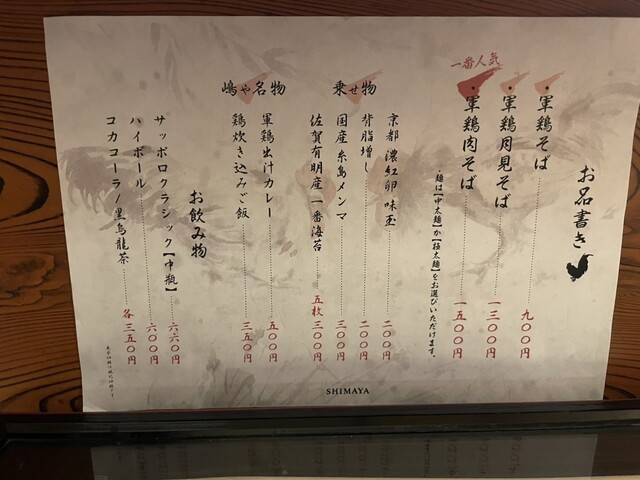 お品書き
・軍鶏そば 九〇〇円
・軍鶏月見そば 一三〇〇円
一番人気
・軍鶏肉そば 一五〇〇円
・麺は【中太麺】か【極太麺】をお選びいただけます。
乗せ物
京都 濃紅卵 味玉 二〇〇円
背脂増し 二〇〇円
国産 糸島メンマ 三〇〇円
佐賀有明産 一番海苔 五枚 三〇〇円
嶋や名物
軍鶏出汁カレー 五〇〇円
鶏炊き込みご飯 三五〇円
お飲み物
サッポロクラシック【中瓶】 六六〇円
ハイボール 六〇〇円
コカコーラ/黒烏龍茶 各 三五〇円
SHIMAYA